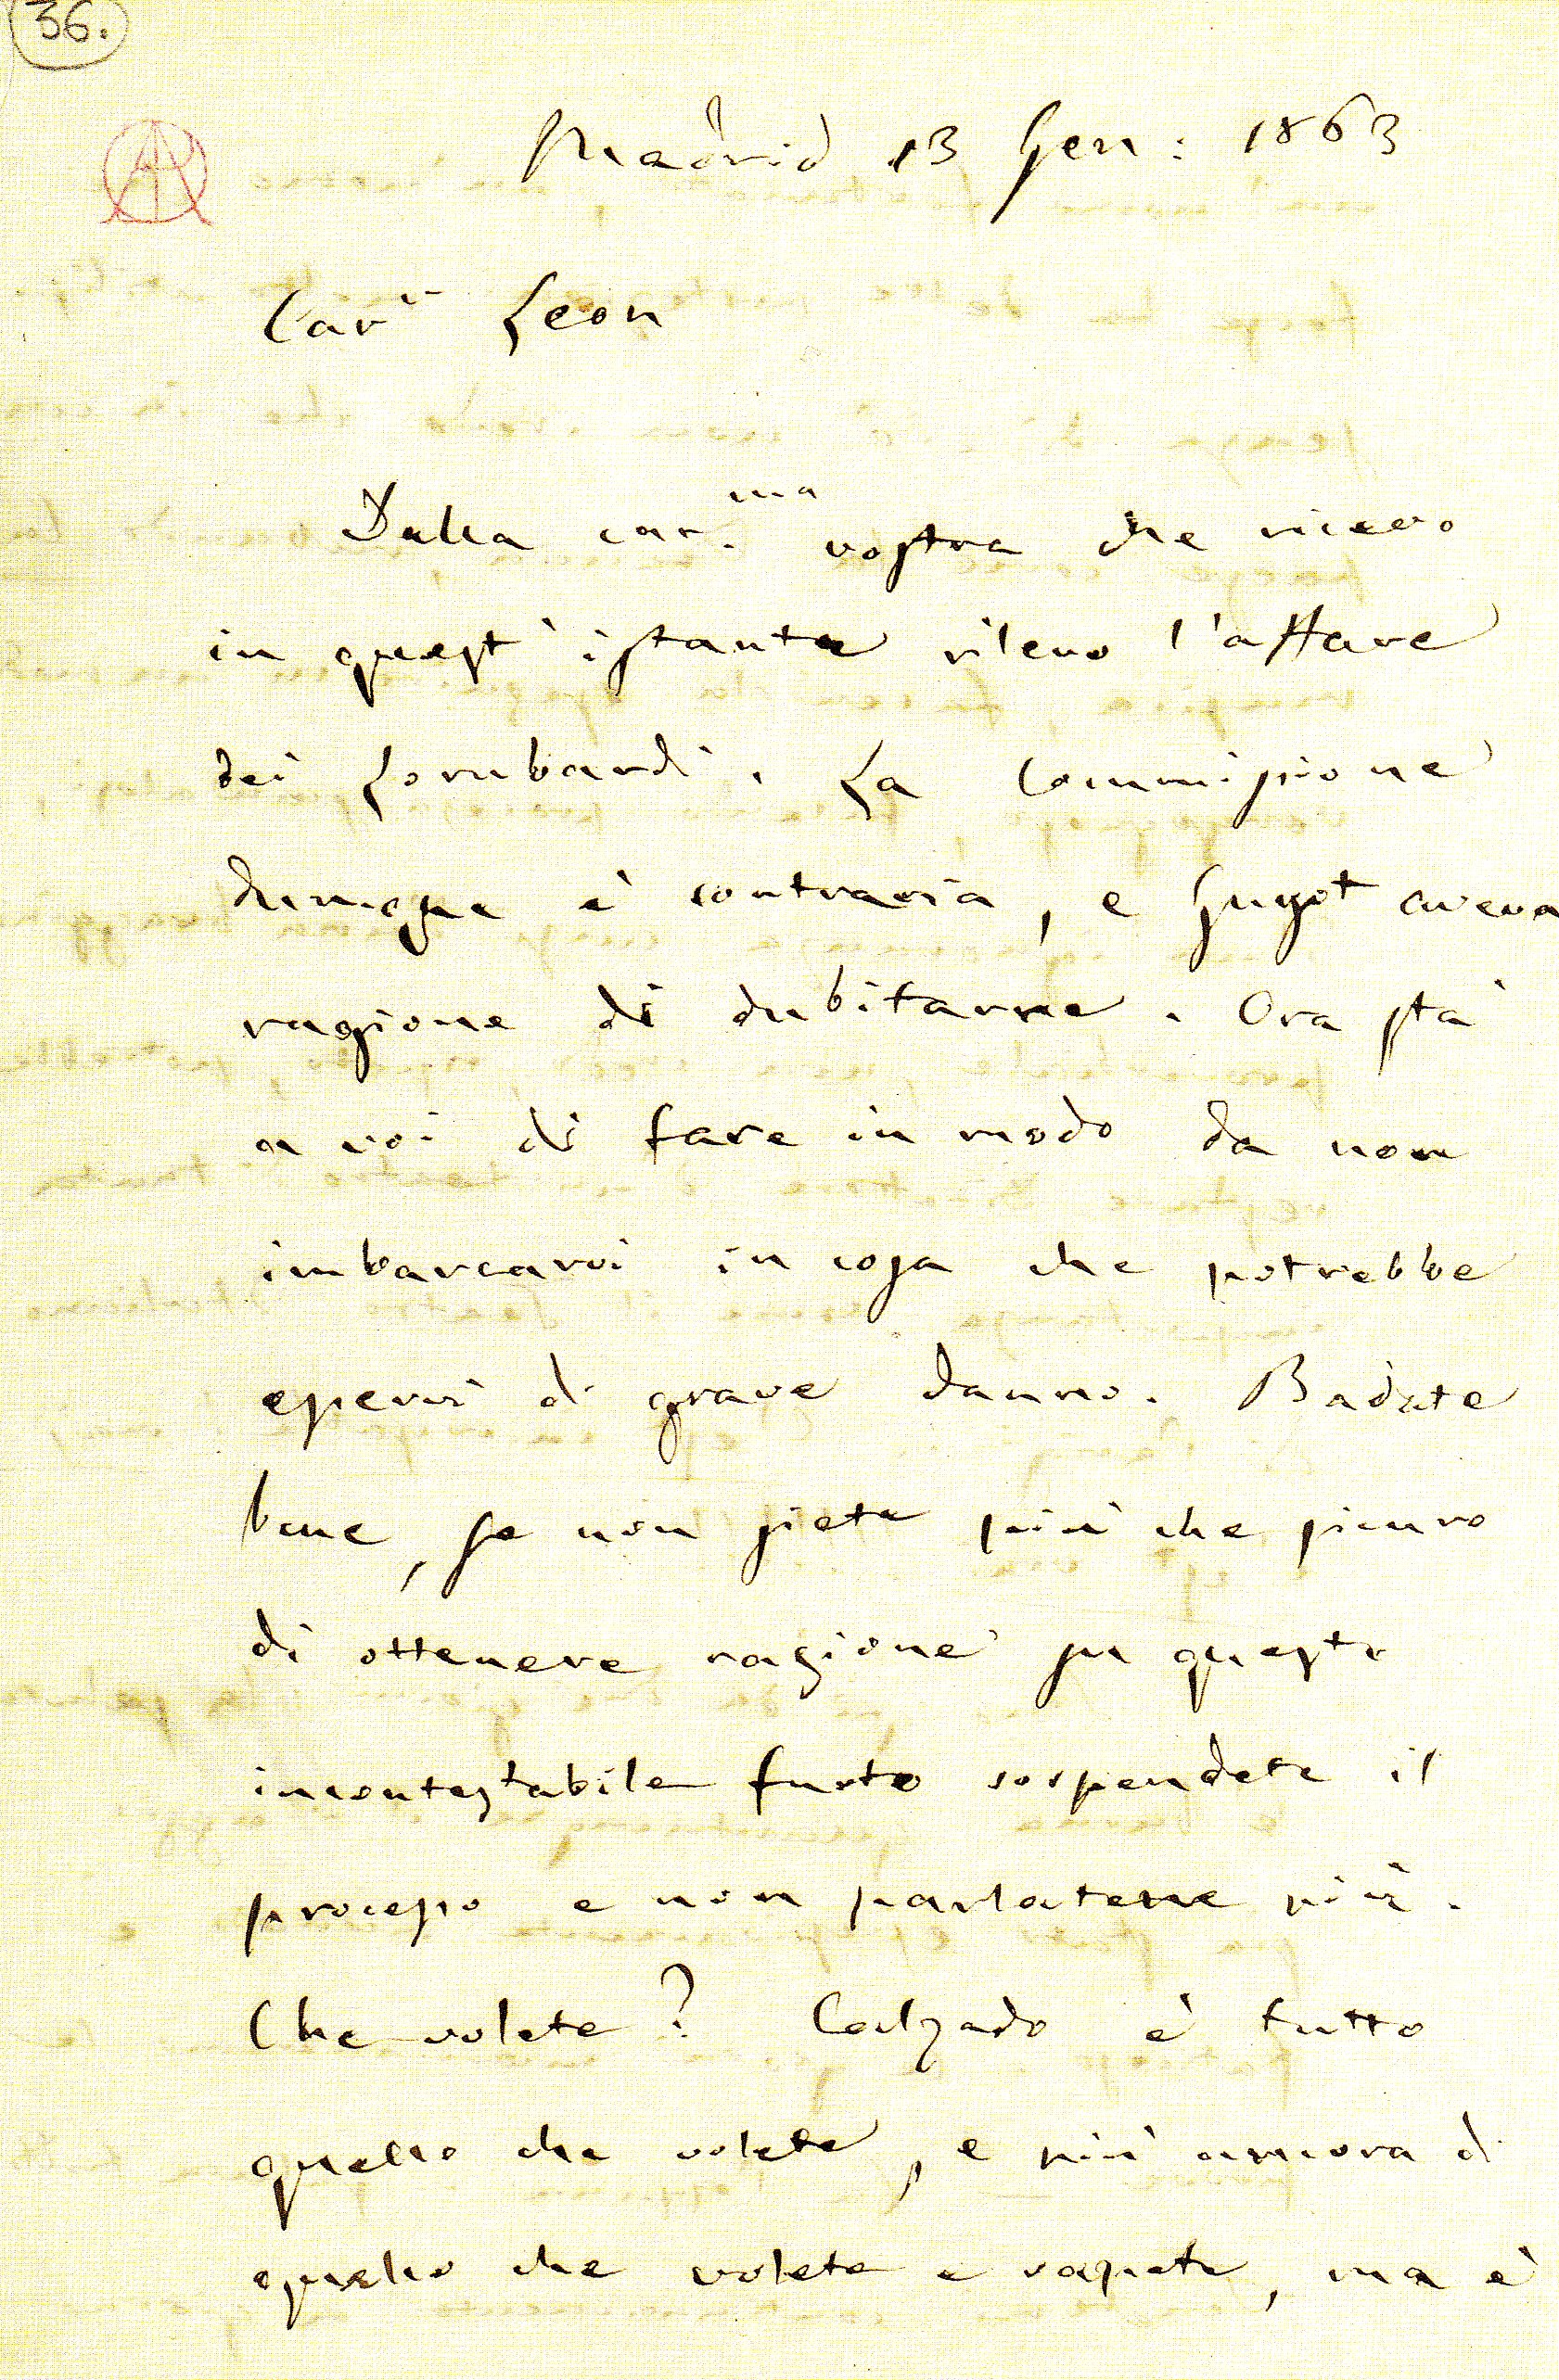 36.
Madrid 13 Gen: 1863
Car. Leon
Dalla car.ma vostra che ricevo
in quest'istante rilevo l'affare
dei Lombardi. La Commissione
dunque è contraria, e Guyot aveva
ragione di dubitarne. Ora sta
a voi di fare in modo da non
imbarcarvi in cosa che potrebbe
esservi di grave danno. Badate
bene, se non siete più che sicuro
di ottenere ragione su questo
incontestabile furto sospendete il
processo e non parlatene più.
Che volete? Calzado è tutto
quello che volete, e più ancora di
quello che volete e sapete, ma è